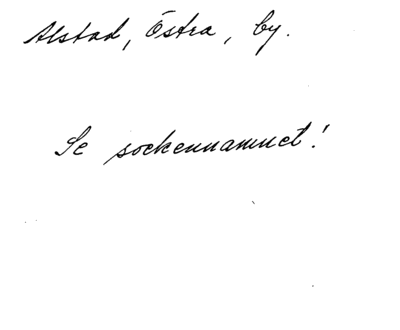 Alstad, Östra, by.
Se sockennamnet!